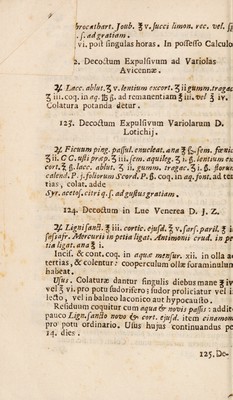 brocathart. Joub. ℥ v. succi limon. rec. vel.
. s. ad gratiam.
vi. post singulas horas. In possesso Calculo
2. Decoctum Expulsivum ad Variolas
Avicennæ.
♃. Lacc. ablut. ʒ v. lentium excort. ʒ ii gumm. tragac
ʒ iii. coq. in aq. ℔ ß. ad remanentiam ℥ iii. vel ℥ iv.
Colatura potanda detur.
123. Decoctum Expulsivum Variolarum D.
Lotichij.
♃. Ficuum ping. passul. enucleat. ana ℥ ß. sem. fœnic
ʒ ii. C C. usti præp. ʒ iii. sem. aquileg. ʒ i. ß. lentium ex
cort. ℥. ß. lacc. ablut. ʒ ii. gumm. tragac. ʒ i. ß. florum
calend. P. j. foliorum Scord. P. ß. coq. in aq. font. ad ter
tias, colat. adde
Syr. acetos. citri q. s. ad gustus gratiam.
124. Decoctum in Lue Venerea D. J. Z.
♃. Ligni sanct. ℥ iii. cortic. ejusd. ℥ v. sars. paril. ℥ ii
sassafr. Mercurii in petia ligat. Antimonii crud. in pe
tia ligat. ana ℥ i.
Incis. & cont. coq. in aquæ mensur. xii. in olla ad
tertias, & colentur: cooperculum ollæ foraminulum
habeat.
Usus. Colaturæ dantur singulis diebus mane ℥ iv
vel ℥ vi. pro potu sudorifero; sudor proliciatur vel in
lecto, vel in balneo laconico aut hypocausto.
Residuum coquitur cum aqua & novis passis: additis
pauco Lign. sancto novo & cort. ejusd. item cinamomo
pro potu ordinario. Usus hujus continuandus per
14. dies.
125. De-